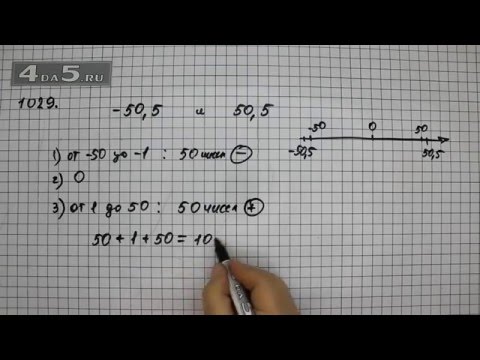 4DA5.RU
1029.
-50,5 и 50,5
-50 0 50
-50,5 50,5
1) от -50 до -1 : 50 чисел (-)
2) 0
3) от 1 до 50 : 50 чисел (+)
50 + 1 + 50 = 10